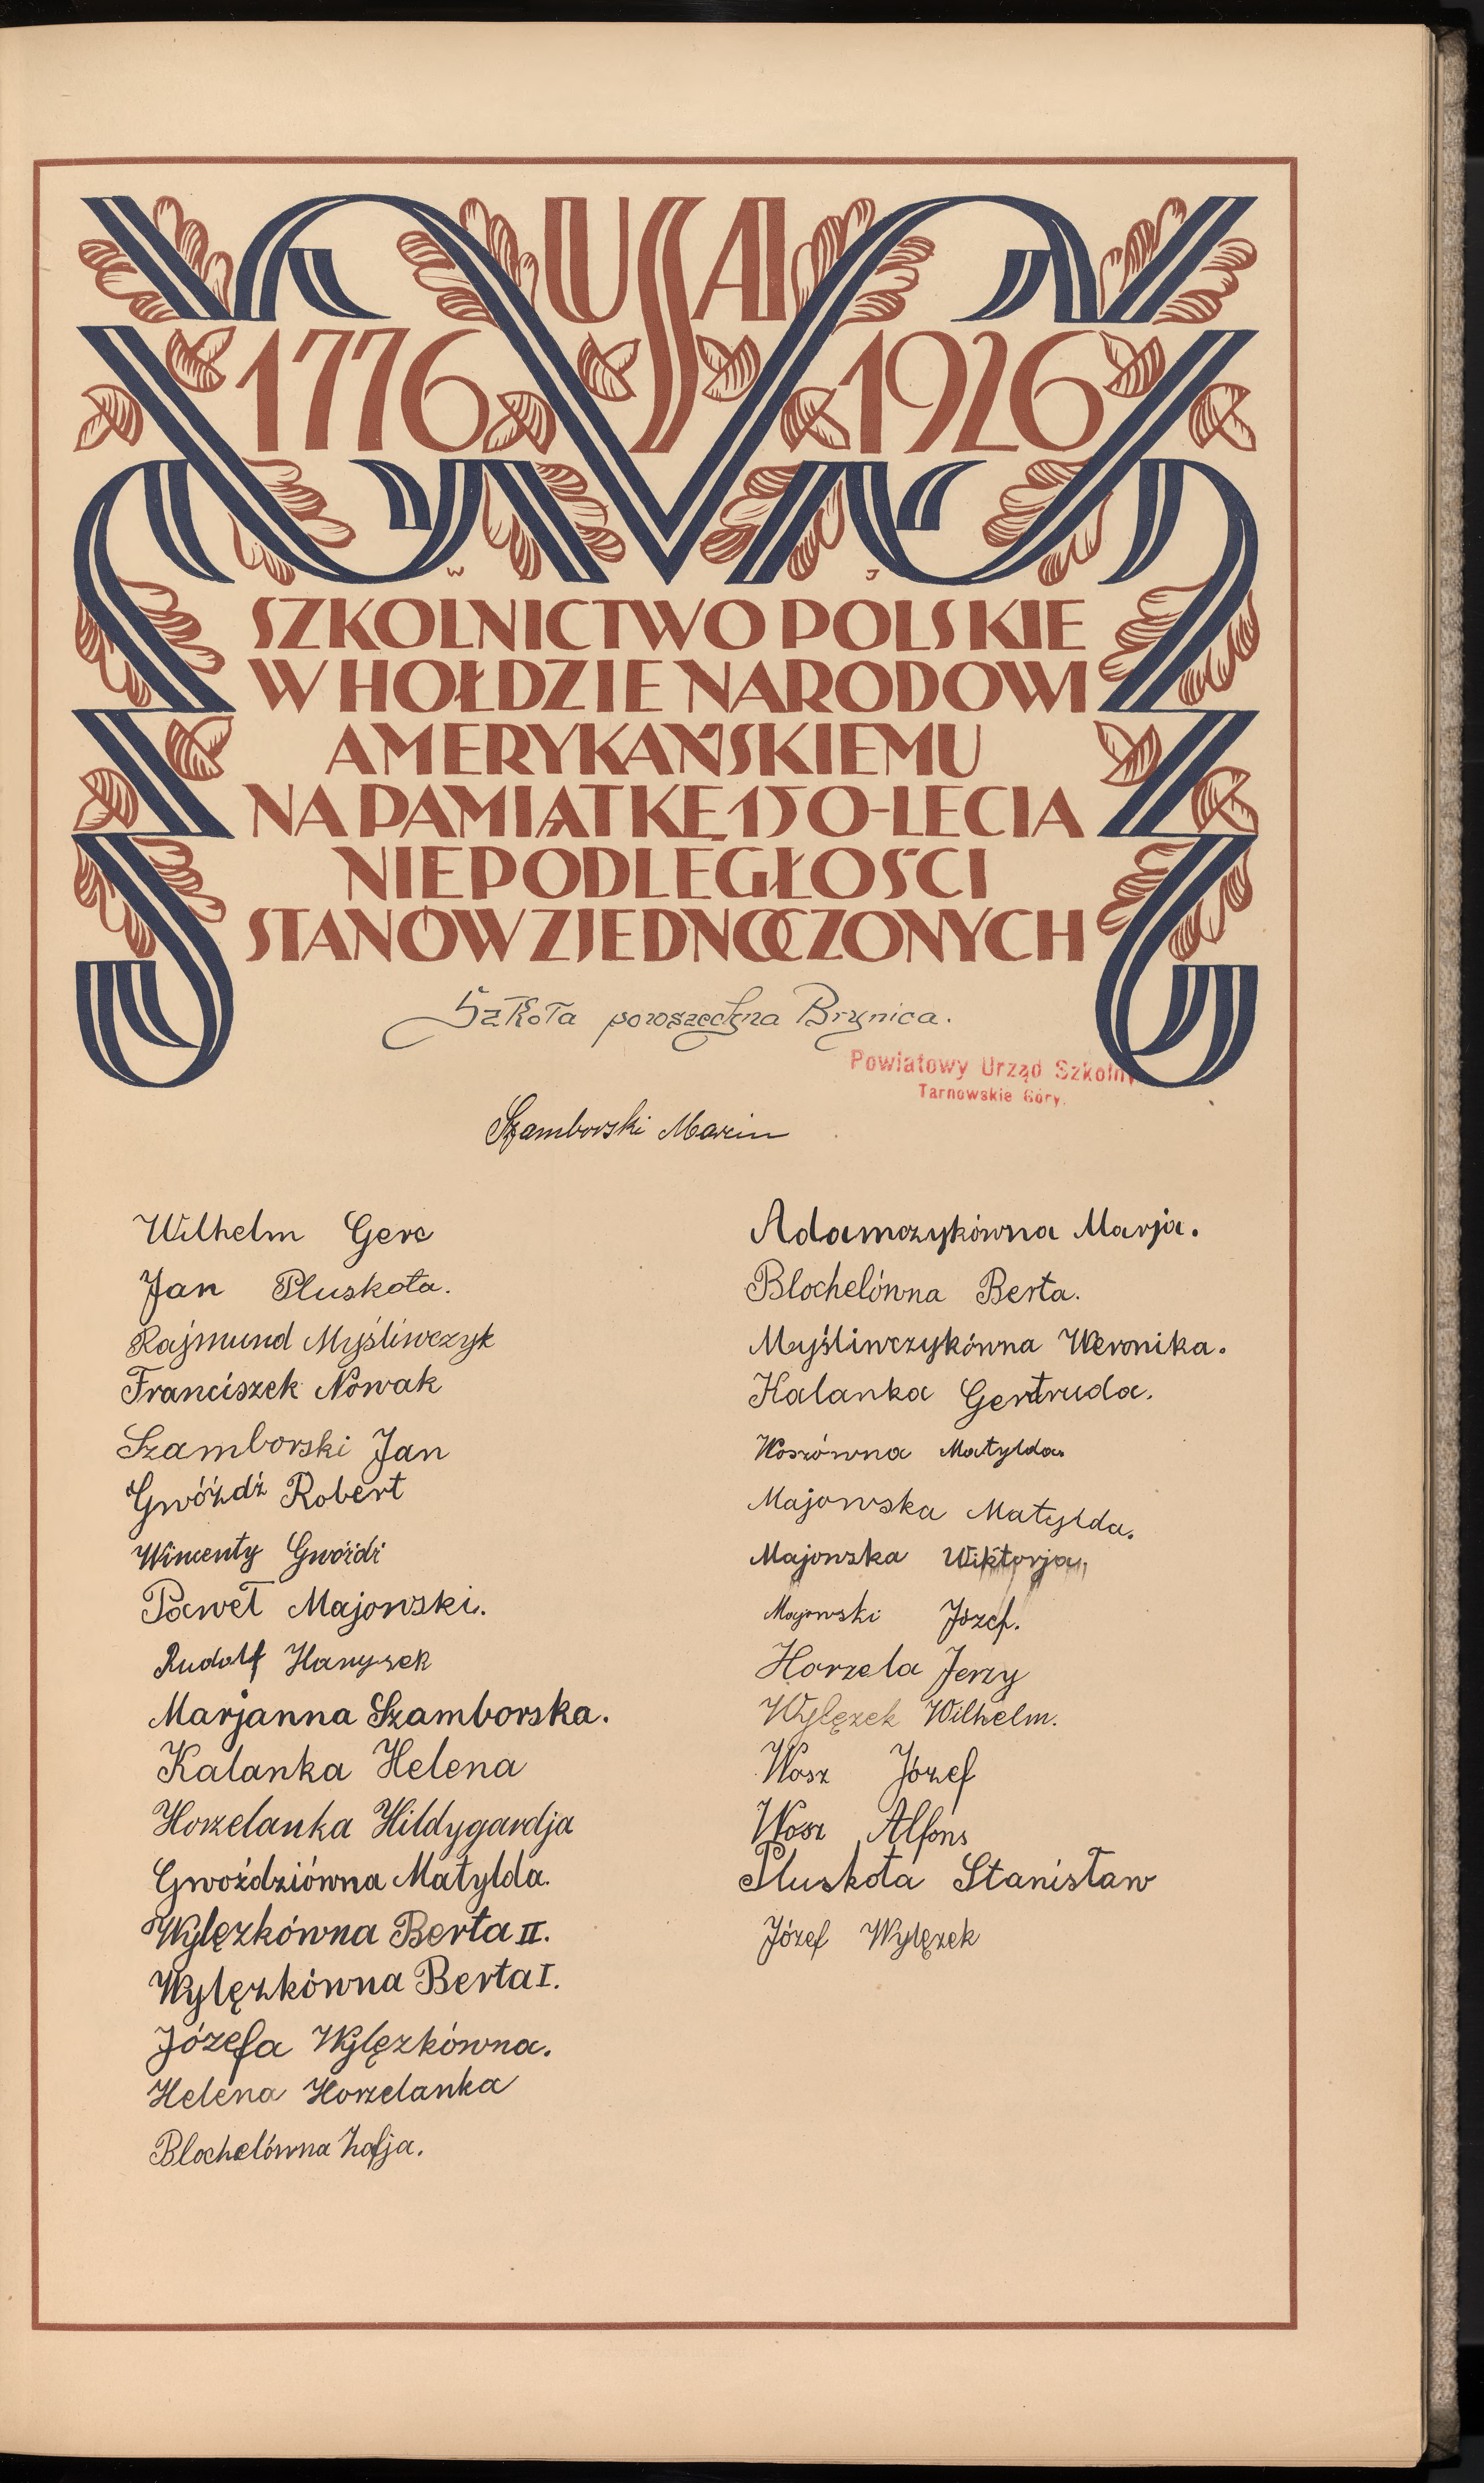 USA
1776 1926
W J
SZKOLNICTWO POLSKIE
W HOŁDZIE NARODOWI
AMERYKAŃSKIEMU
NA PAMIĄTKĘ 150-LECIA
NIEPODLEGŁOŚCI
STANÓW ZJEDNOCZONYCH
Szkoła powszechna Brynica.
Powiatowy Urząd Szkolny
Tarnowskie Góry.
Szamborski Marcin
Wilhelm Gerc
Jan Pluskota.
Rajmund Myśliwczyk
Franciszek Nowak
Szamborski Jan
Gwóźdź Robert
Wincenty Gwóźdź
Paweł Majowski.
Rudolf Hanysek
Marjanna Szamborska.
Kalanka Helena
Horzelanka Hildygardja
Gwoździówna Matylda.
Wylęzkówna Berta II.
Wylęzkówna Berta I.
Józefa Wylęzkówna.
Helena Horzelanka
Blochelówna Zofja.
Adamczykówna Marja.
Blochelówna Berta.
Myśliwczykówna Weronika.
Kalanka Gertruda.
Woszówna Matylda.
Majowska Matylda.
Majowska Wiktorja,
Majowski Józef.
Horzela Jerzy
Wylęzek Wilhelm.
Wosz Józef
Wosz Alfons
Pluskota Stanisław
Józef Wylęzek